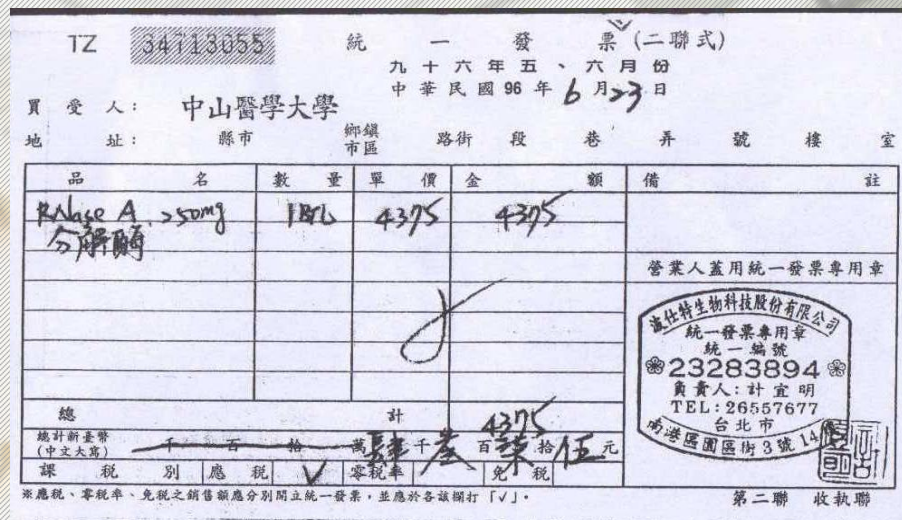 TZ 34713055 統一發票(二聯式)
九十六年五、六月份
中華民國96年6月23日
買受人: 中山醫學大學
地址: 縣市 鄉鎮市區 路街 段 巷 弄 號 樓 室
品名 數量 單價 金額 備註
RNase A 250mg 1BTL 4375 4375
分解酶
營業人蓋用統一發票專用章
波仕特生物科技股份有限公司
統一發票專用章
統一編號
23283894
負責人:計宜明
TEL:26557677
台北市
南港區園區街3號14
總計 4375
總計新臺幣(中文大寫) 千 百 拾 萬肆千叁百柒拾伍元
課稅別 應稅 √ 零稅率 免稅
※應稅、零稅率、免稅之銷售額應分別開立統一發票,並應於各該欄打「√」。
第二聯 收執聯